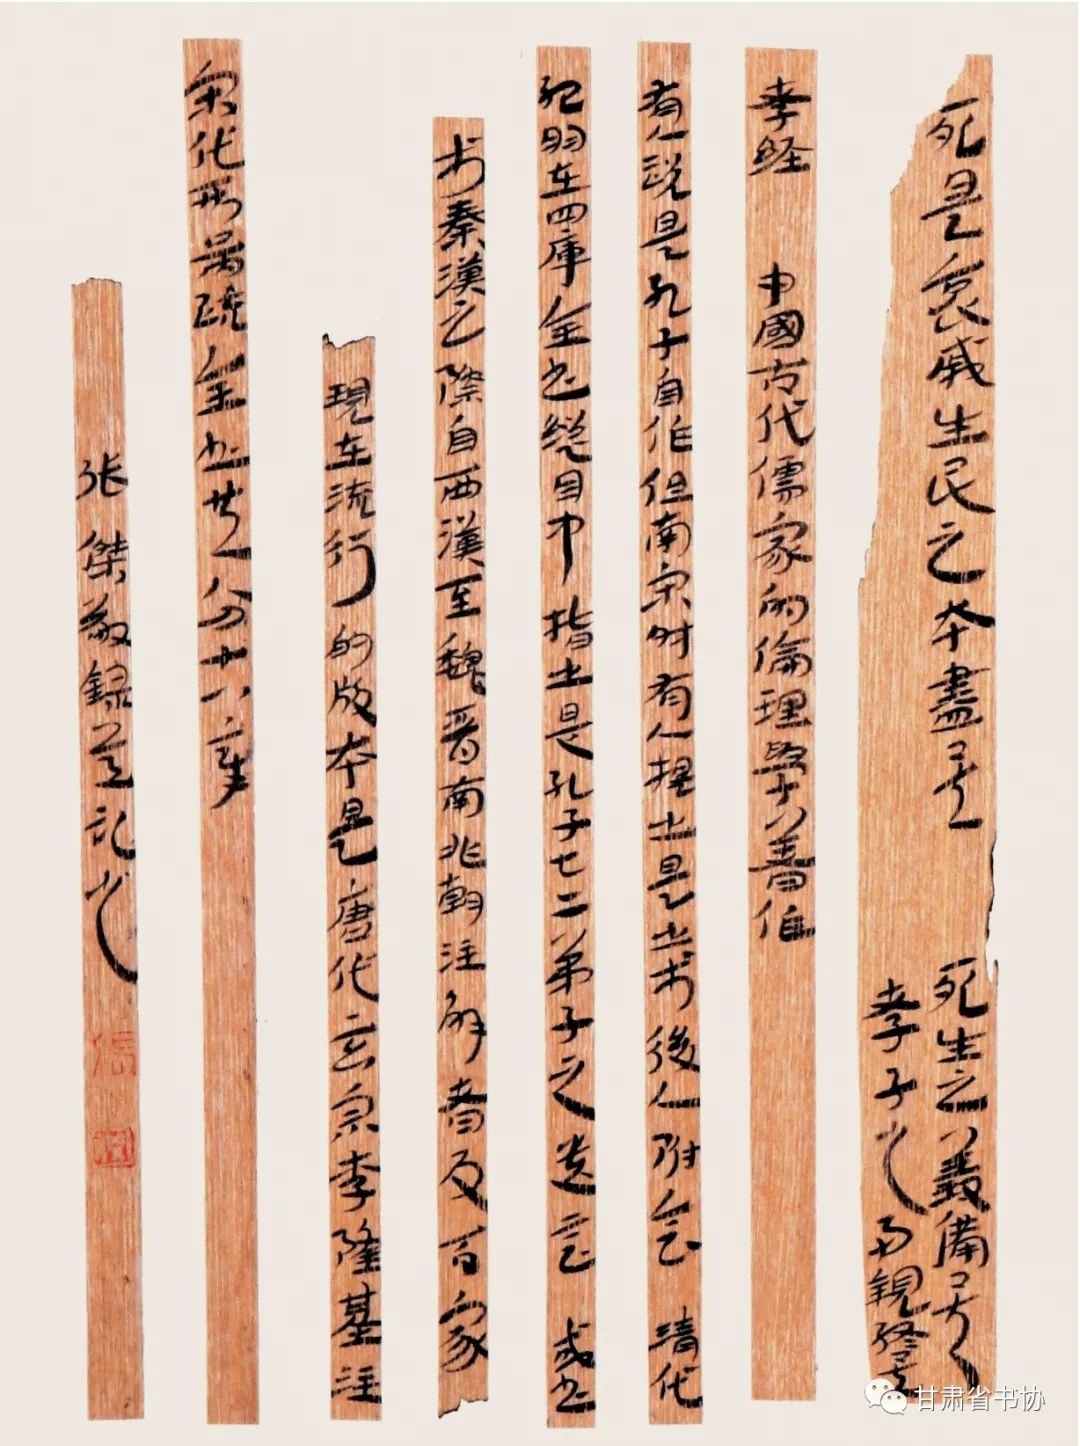 死是哀戚生民之本盡矣
死生之義備矣
孝子之事親終矣
孝经
中國古代儒家的倫理學著作
有人說是孔子自作但南宋时有人提出是出於後人附会 清代
纪昀在四庫全书總目中指出是孔子七二弟子之遺言 成书
於秦漢之際自西漢至魏晋南北朝注解者及百家
現在流行的版本是唐代玄宗李隆基注
宋代邢昺疏全书共分十八章
张傑敬録並記之
甘肃省书协